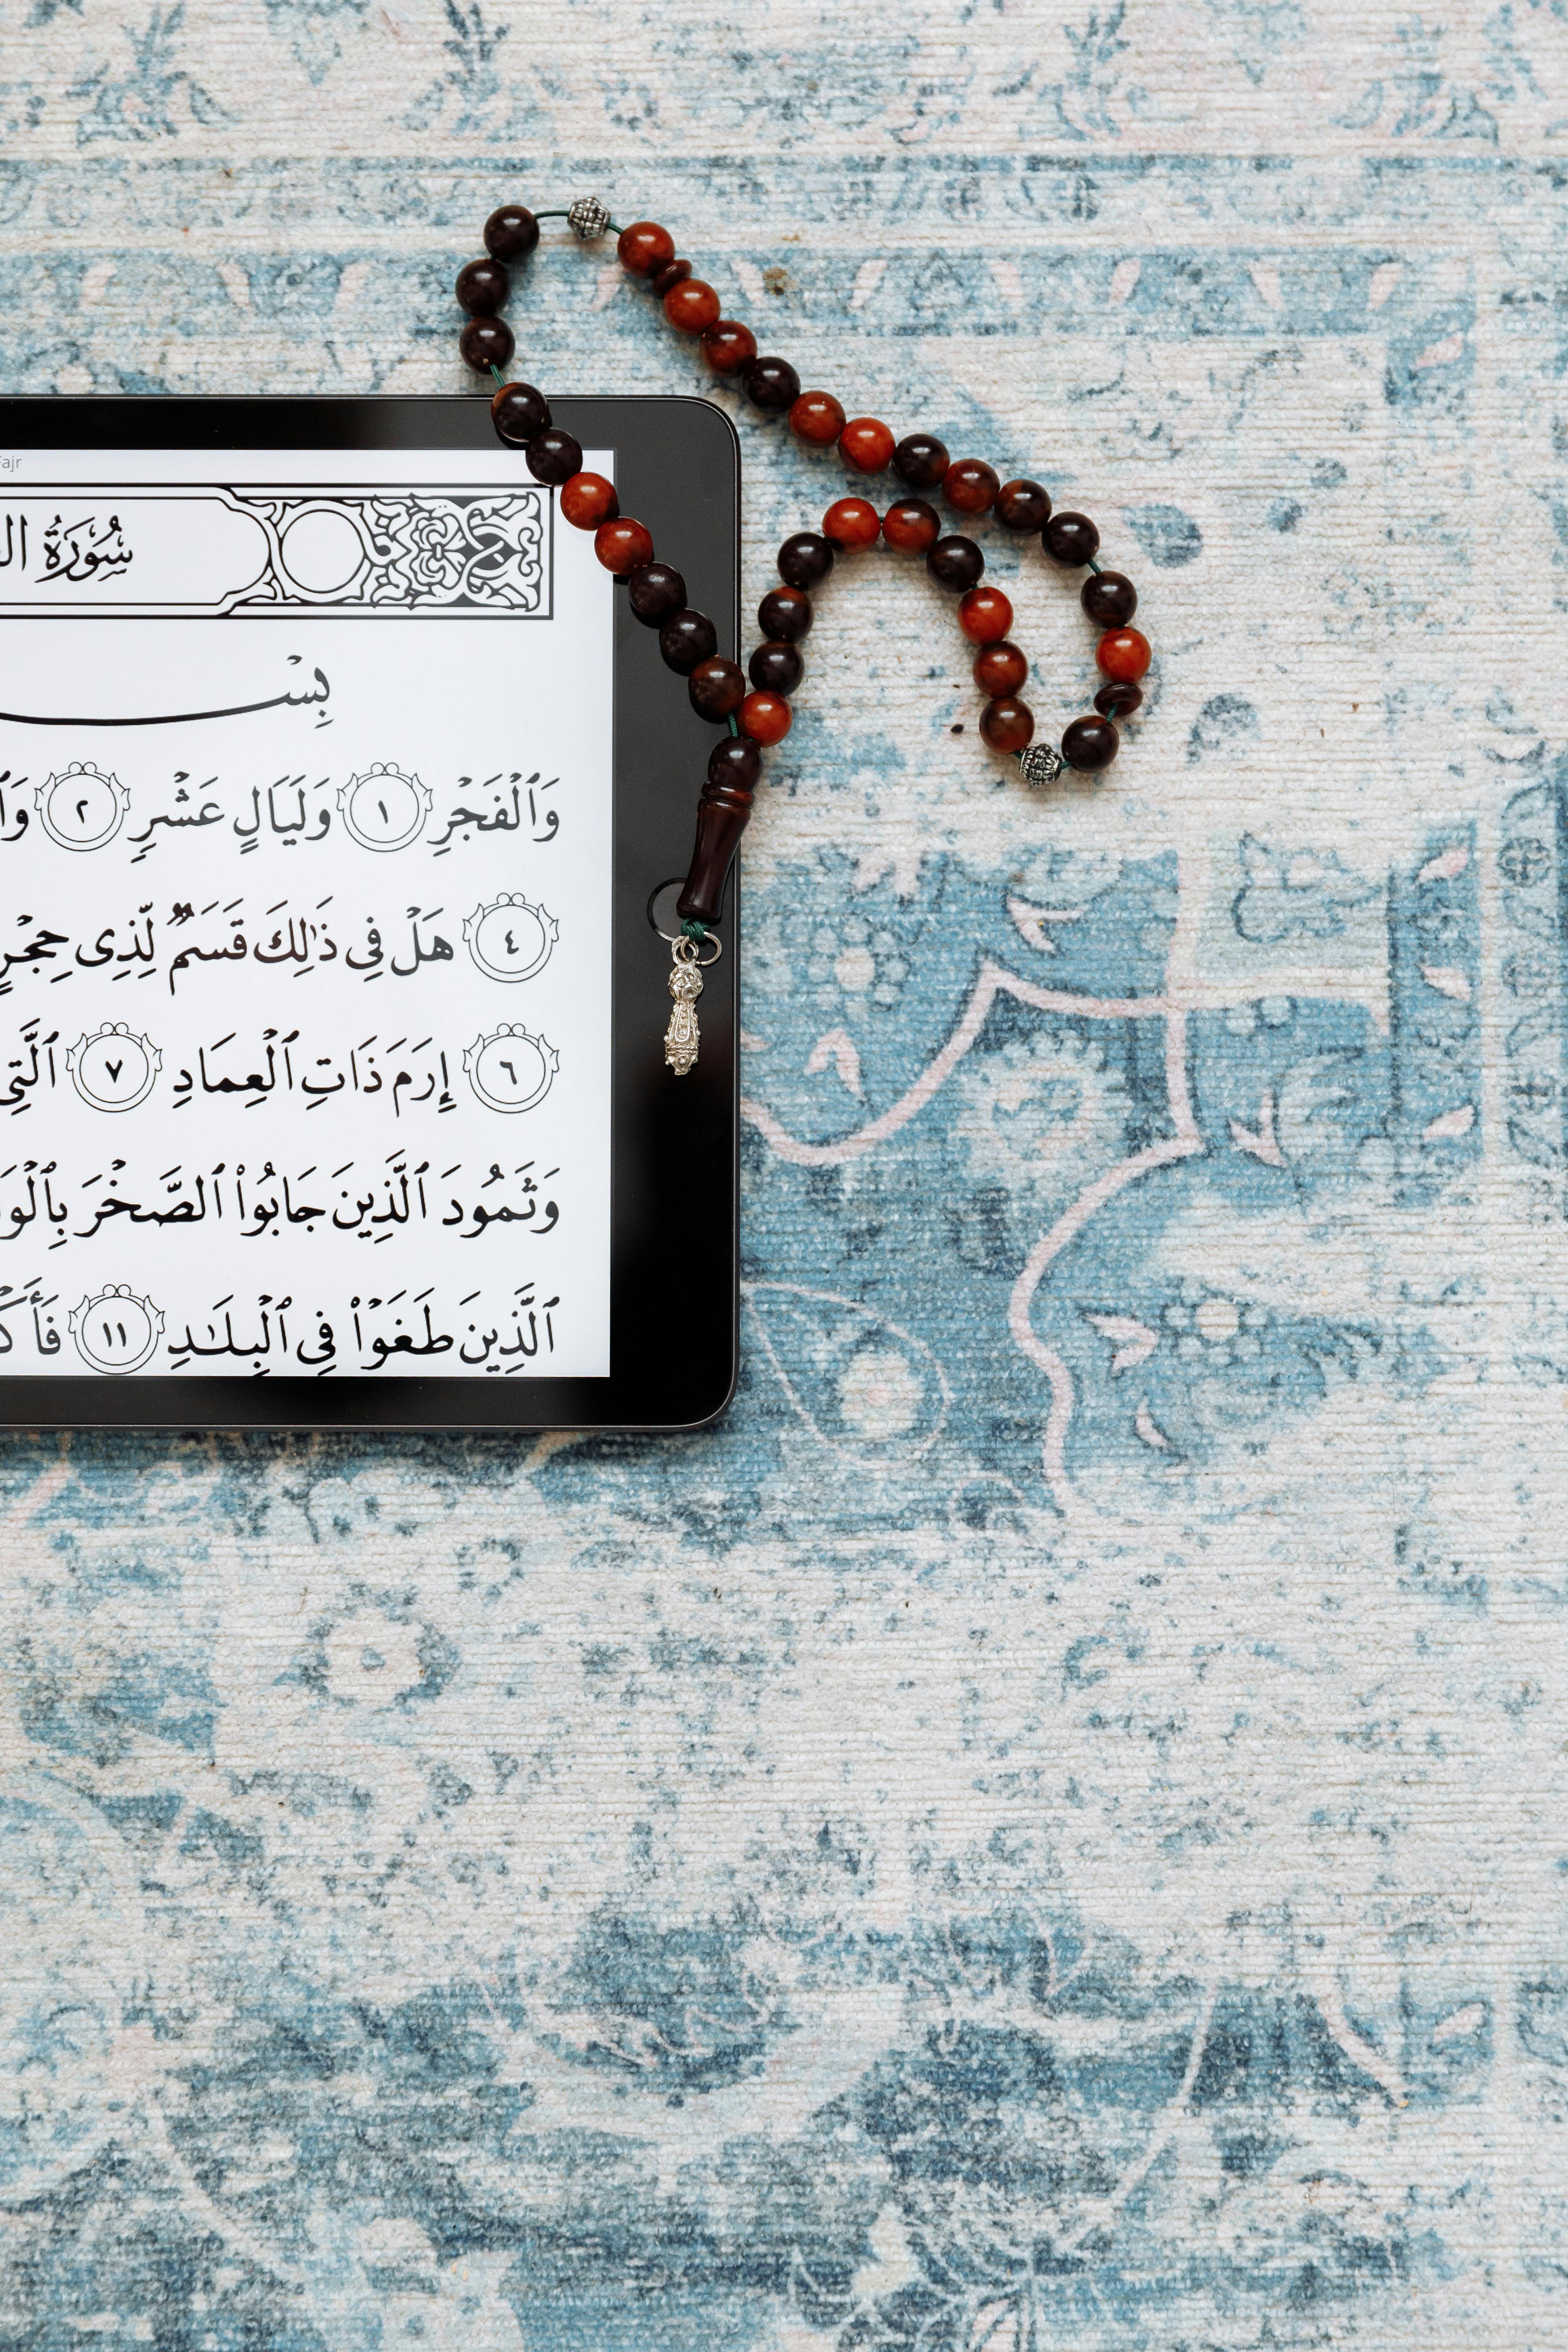 Fajr
سُورَةُ
وَٱلۡفَجۡرِ ١ وَلَيَالٍ عَشۡرٖ ٢
٤ هَلۡ فِي ذَٰلِكَ قَسَمٞ لِّذِي حِجۡرٍ
٦ إِرَمَ ذَاتِ ٱلۡعِمَادِ ٧ ٱلَّتِي
وَثَمُودَ ٱلَّذِينَ جَابُواْ ٱلصَّخۡرَ
ٱلَّذِينَ طَغَوۡاْ فِي ٱلۡبِلَٰدِ ١١